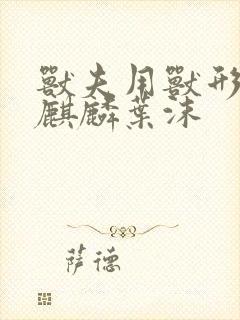 獸夫用獸形
麒麟葉沫
萨德